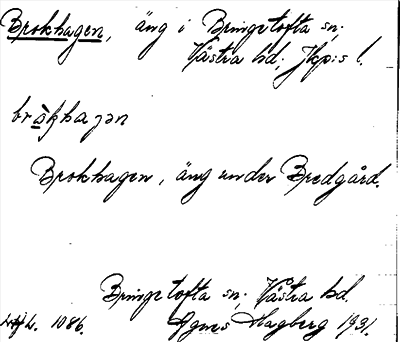 Brokhagen, äng i Bringetofta sn;
Västra hd; Jkp:s l.
bråkhagən
Brokhagen, äng under Bredgård.
Bringetofta sn; Västra hd.
1086. Agnes Hagberg 1931.